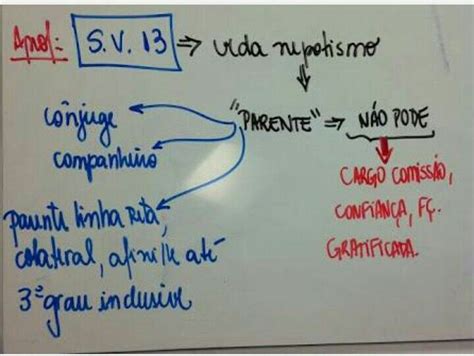 Aprof: S.V. 13 ⇒ veda nepotismo
"PARENTE" ⇒ NÃO PODE
cônjuge
companheiro
parente linha reta,
colateral, afini/e até
3º grau inclusive
CARGO COMISSÃO,
CONFIANÇA, FÇ.
GRATIFICADA.